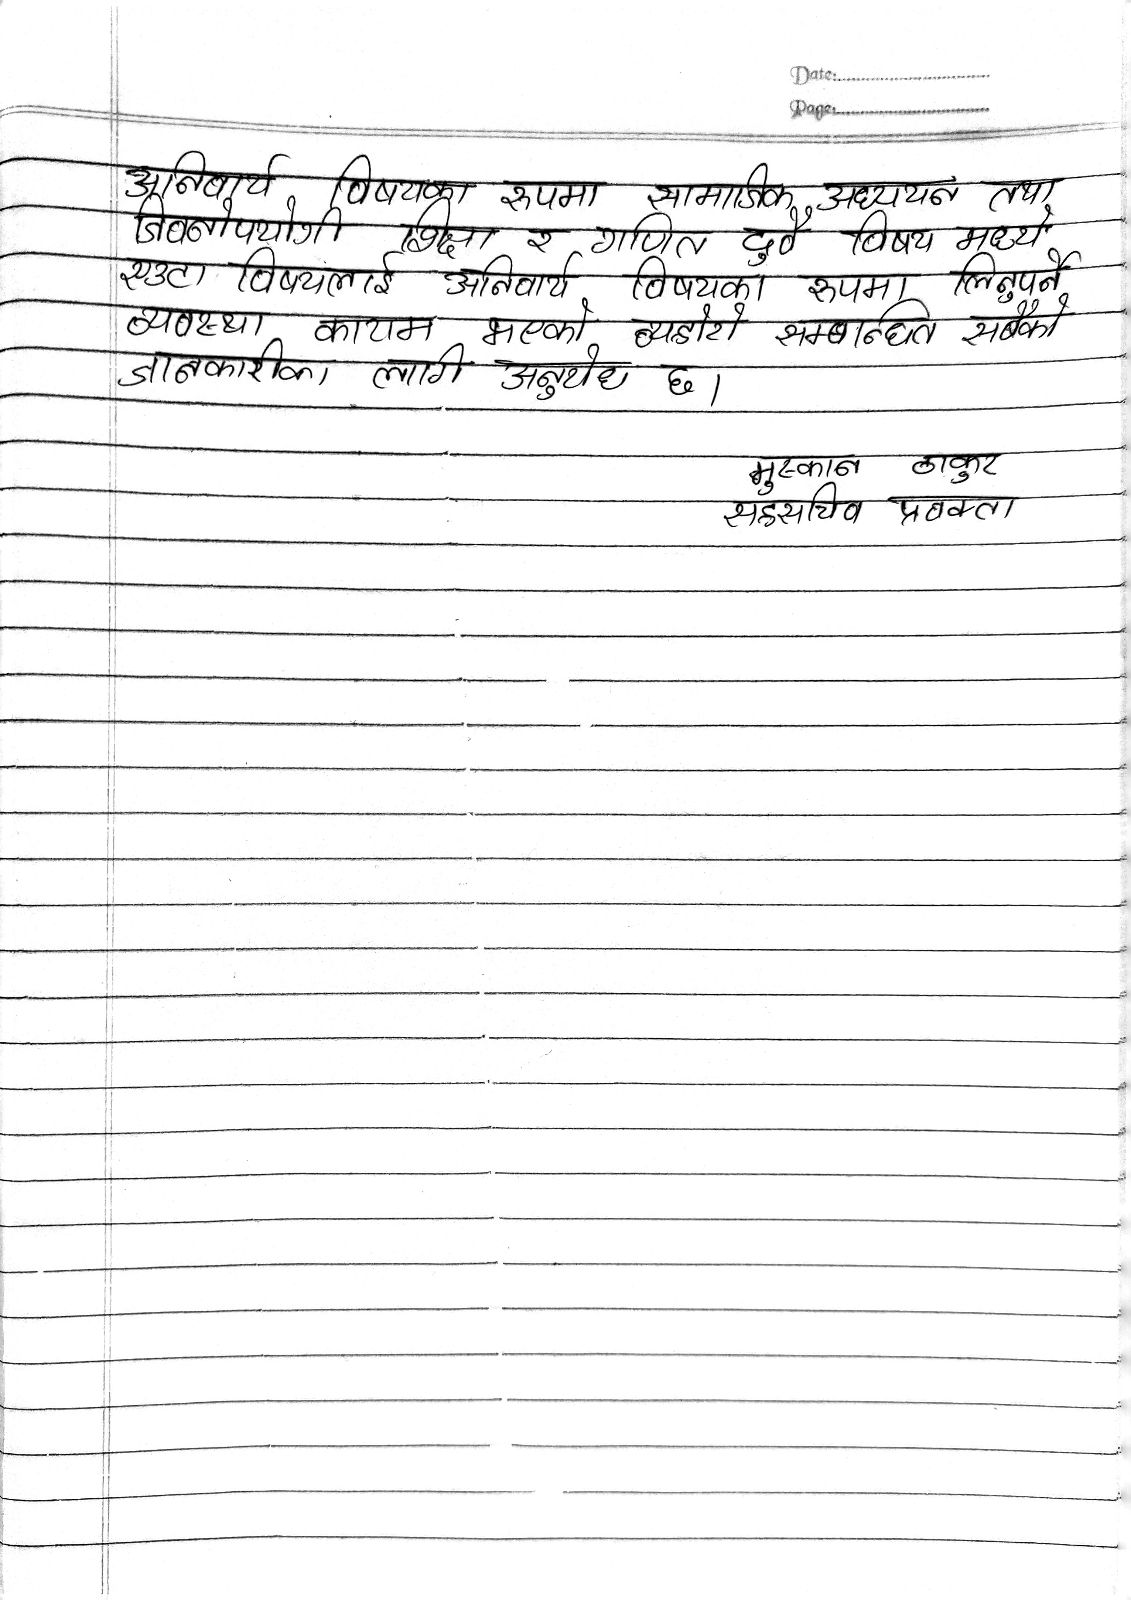 Date:
Page:
अनिवार्य विषयका रुपमा सामाजिक अध्ययन तथा
जिवनोपयोगी शिक्षा र गणित दुवै विषय मध्ये
एउटा विषयलाई अनिवार्य विषयका रुपमा लिनुपर्ने
व्यवस्था कायम भएको व्यहोरा सम्बन्धित सबैको
जानकारीका लागि अनुरोध छ।
मुस्कान ठाकुर
सहसचिव प्रवक्ता